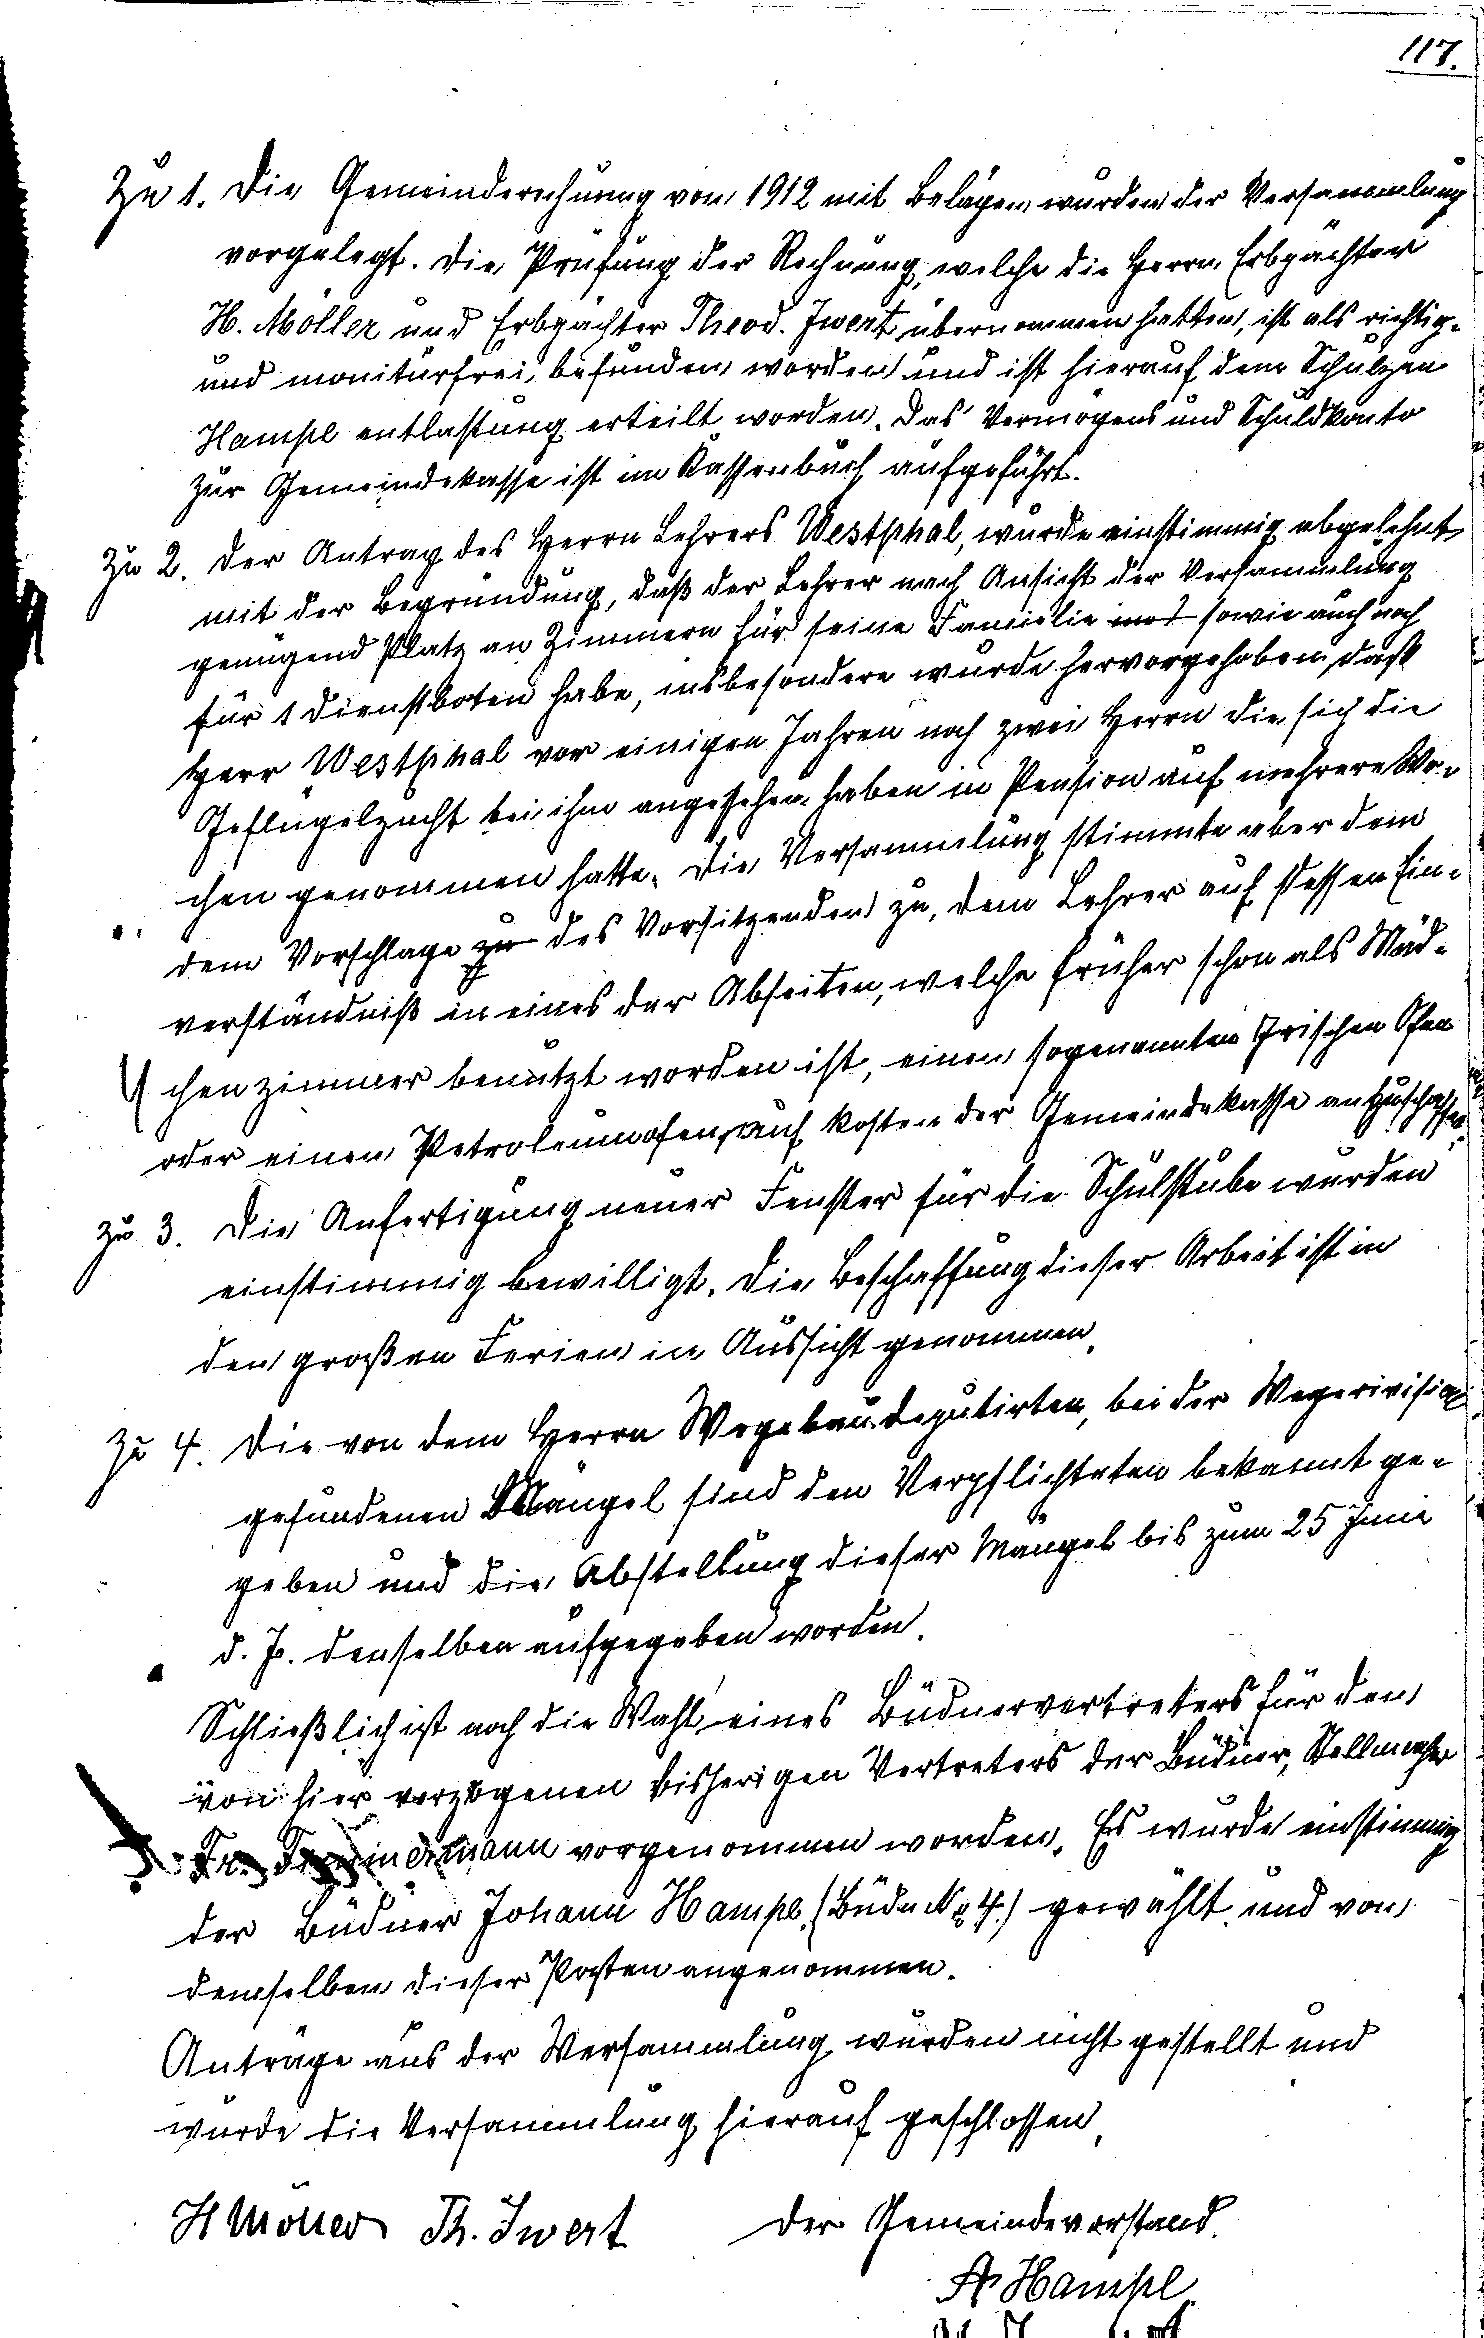 117.
Zu 1. Die Gemeinderechnung von 1912 mit Belägen wurden der Versammlung
vorgelegt. Die Prüfung der Rechnung, welche die Herrn Erbpächter
H. Möller und Erbpächter Theod. Iwert übernommen hatten, ist als richtig
und moniturfrei befunden worden und ist hierauf dem Schulzen
Hampl entlastung erteilt worden. Das Vermögens und Schuldkonto
zur Gemeindekasse ist im Kassenbuch aufgeführt.
Zu 2. Der Antrag des Herrn Lehrers Westphal, wurde einstimmig abgelehnt,
mit der Begründung, daß der Lehrer nach Ansicht der Versammlung
genügend Platz an Zimmern für seine Familie sowie auch noch
für 1 Dienstboten habe, insbesondere wurde hervorgehoben, daß
Herr Westphal vor einigen Jahren noch zwei Herrn die sich die
Geflügelzucht bei ihm angesehen haben in Pension auf mehrere Wo-
chen genommen hatte. Die Versammlung stimmte aber dem
dem Vorschlage zu des Vorsitzenden zu, dem Lehrer auf dessen Ein-
verständniß in eines der Abseiten, welche früher schon als Mäd-
chenzimmer benutzt worden ist, einen sogenannten Irischen Ofen
oder einen Petroleumofen, auf kosten der Gemeindekasse anzuschaffen.
Zu 3. Die Anfertigung neuer Fenster für die Schulstube wurden
einstimmig bewilligt. Die Beschaffung dieser Arbeit ist in
den großen Ferien in Aussicht genommen.
Zu 4. Die von dem Herrn Wegebaudeputirten, bei der Wegerivision
gefundenen Mängel sind den Verpflichteten bekannt ge-
geben und die Abstellung dieser Mängel bis zum 25 Juni
d. J. denselben aufgegeben worden.
Schließlich ist noch die Wahl eines Büdnervertreters für den
von hier verzogenen bisherigen Vertreters der Büdner, Stellmacher
Fr. vorgenommen worden. Es wurde einstimmig
der Büdner Johann Hampl, (Büdn № 4.) gewählt und von
demselben dieser Posten angenommen.
Anträge aus der Versammlung wurden nicht gestellt und
wurde die Versammlung hierauf geschlossen.
H Möller Th. Iwert Der Gemeindevorstand.
A Hampl